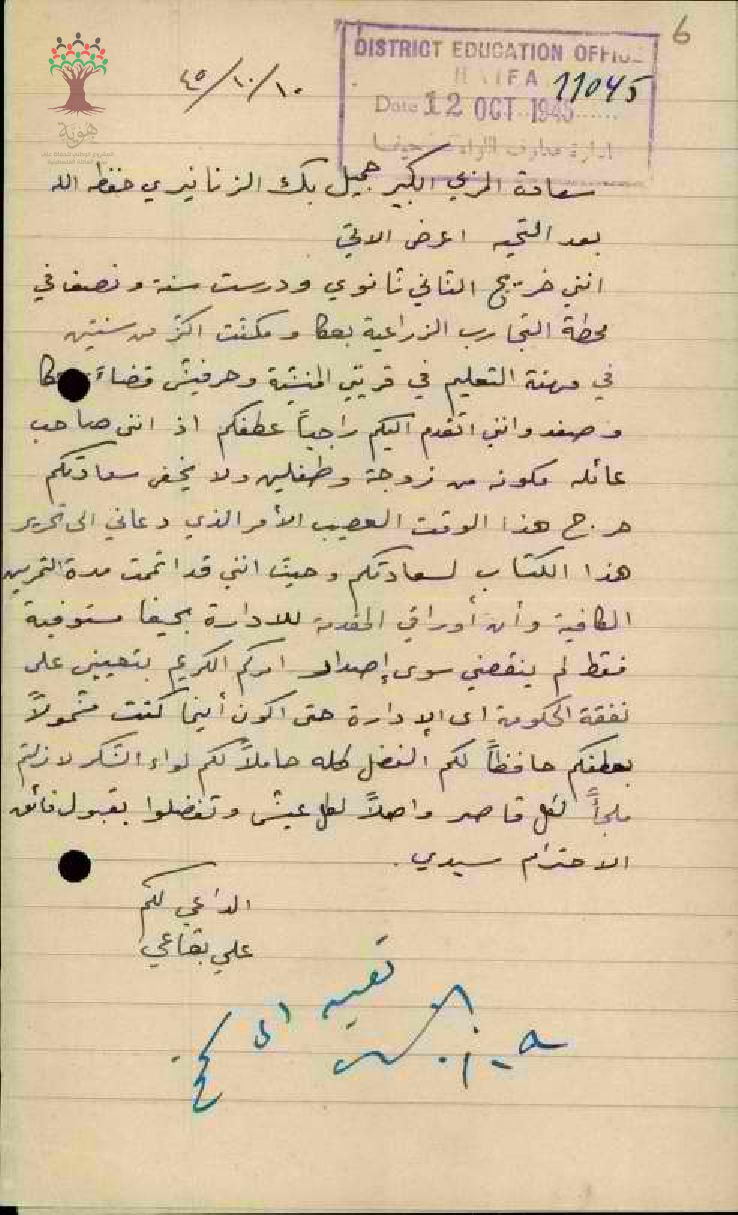 6
DISTRICT EDUCATION OFFICE
HAIFA 11045
Date 12 OCT 1945
ادارة معارف اللواء حيفا
هوية
٤٥/١٠/١٠
سعادة المربي الكبير جميل بك الزنانيري حفظه الله
بعد التحيه اعرض الاتي
انني خريج الثاني ثانوي ودرست سنة ونصف في
محطة التجارب الزراعية بعكا ومكثت اكثر من سنتين
في مهنة التعليم في قريتي المنشية وحرفيش قضاء عكا
وصفد وانني اتقدم اليكم راجياً عطفكم اذ انني صاحب
عائله مكونه من زوجة وطفلين ولا يخفى سعادتكم
حرج هذا الوقت العصيب الأمر الذي دعاني الى تحرير
هذا الكتاب لسعادتكم وحيث انني قد اتممت مدة التمرين
الكافية وأن أوراقي المقدمة للادارة بحيفا مستوفية
فقط لم ينقصني سوى إصدار امركم الكريم بتعييني على
نفقة الحكومة او الإدارة حتى اكون أينما كنت مشمولاً
بعطفكم حافظاً لكم الفضل كله حاملاً لكم لواء الشكر لا زلتم
ملجأً لكل قاصد واملاً لكل عيش وتفضلوا بقبول فائق
الاحترام سيدي .
الداعي لكم
علي بقاعي